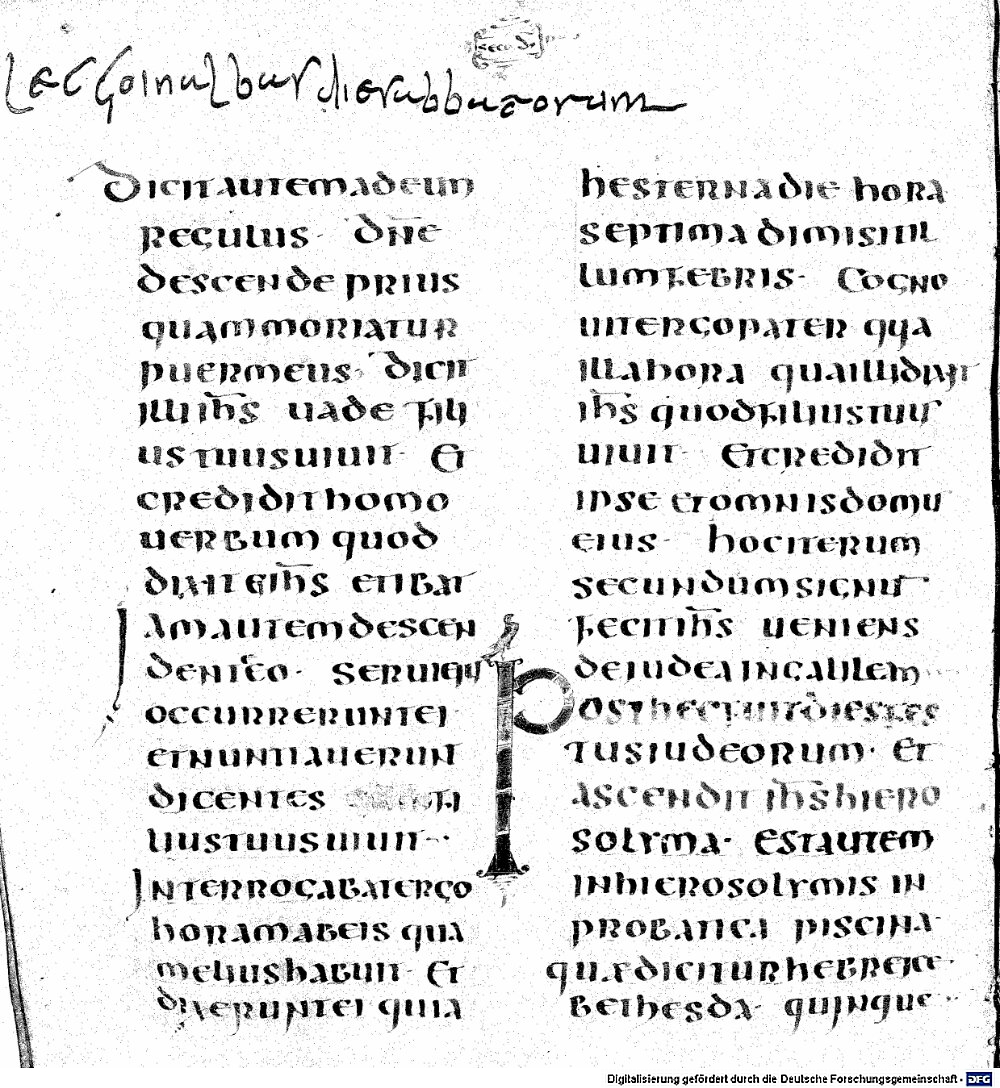 secund
Lectio in albas die sabbatorum
Dicit autem ad eum
regulus· dn̄e
descende prius
quam moriatur
puer meus· dicit
illi ih̄s uade fili
us tuus uiuit· Et
credidit homo
uerbum quod
dixit ei ih̄s et ibat
Iam autem descen
dente eo· serui eius
occurrerunt ei
et nuntiauerunt
dicentes fi
lius tuus uiuit··
Interrogabat ergo
horam ab eis qua
melius habuit· Et
dixerunt ei quia
hesterna die hora
septima dimisit il
lum febris· Cogno
uit ergo pater quia
illa hora qua illi dixit
ih̄s quod filius tuus
uiuit· Et credidit
ipse et omnis domus
eius· hoc iterum
secundum signum
fecit ih̄s ueniens
de iudea in galileam
Post hec fuit dies fes
tus iudeorum· Et
ascendit ih̄s hiero
solyma· Est autem
in hierosolymis in
probatica piscina
quæ dicitur hebreice·
bethesda· quinque··
Digitalisierung gefördert durch die Deutsche Forschungsgemeinschaft - DFG